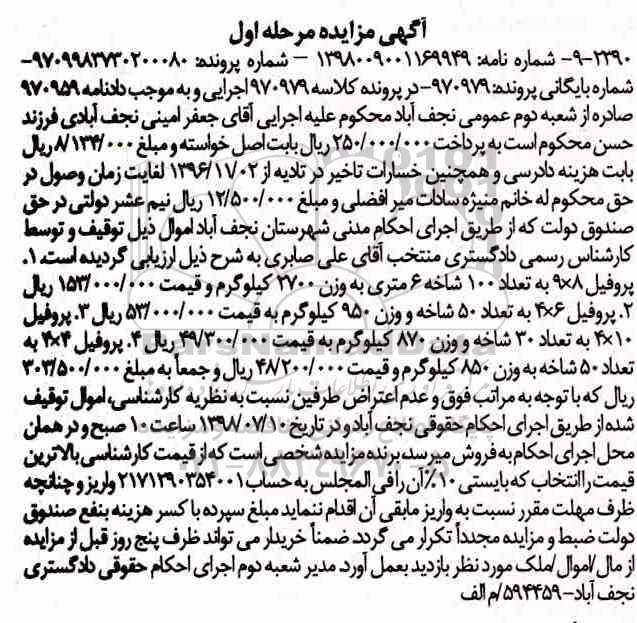 آگهی مزایده مرحله اول
۲۳۹۰-۹- شماره نامه: ۱۳۹۸۰۰۹۰۰۱۱۶۹۹۴۹ – شماره پرونده: ۹۷۰۹۹۸۳۷۳۰۲۰۰۰۸۰-
شماره بایگانی پرونده: ۹۷۰۹۷۹-در پرونده کلاسه ۹۷۰۹۷۹ اجرایی و به موجب دادنامه ۹۷۰۹۵۹
صادره از شعبه دوم عمومی نجف آباد محکوم علیه اجرایی آقای جعفر امینی نجف آبادی فرزند
حسن محکوم است به پرداخت ۲۵۰/۰۰۰/۰۰۰ ریال بابت اصل خواسته و مبلغ ۸/۱۳۴/۰۰۰ ریال
بابت هزینه دادرسی و همچنین خسارات تاخیر در تادیه از ۱۳۹۶/۱۱/۰۲ لغایت زمان وصول در
حق محکوم له خانم منیژه سادات میر افضلی و مبلغ ۱۲/۵۰۰/۰۰۰ ریال نیم عشر دولتی در حق
صندوق دولت که از طریق اجرای احکام مدنی شهرستان نجف آباد اموال ذیل توقیف و توسط
کارشناس رسمی دادگستری منتخب آقای علی صابری به شرح ذیل ارزیابی گردیده است. ۱.
پروفیل ۸×۹ به تعداد ۱۰۰ شاخه ۶ متری به وزن ۲۷۰۰ کیلوگرم و قیمت ۱۵۳/۰۰۰/۰۰۰ ریال
۲. پروفیل ۶×۴ به تعداد ۵۰ شاخه و وزن ۹۵۰ کیلوگرم به قیمت ۵۳/۰۰۰/۰۰۰ ریال ۳. پروفیل
۱۰×۴ به تعداد ۳۰ شاخه و وزن ۸۷۰ کیلوگرم به قیمت ۴۹/۳۰۰/۰۰۰ ریال ۴. پروفیل ۴×۴ به
تعداد ۵۰ شاخه به وزن ۸۵۰ کیلوگرم و قیمت ۴۸/۲۰۰/۰۰۰ ریال و جمعاً به مبلغ ۳۰۳/۵۰۰/۰۰۰
ریال که با توجه به مراتب فوق و عدم اعتراض طرفین نسبت به نظریه کارشناسی، اموال توقیف
شده از طریق اجرای احکام حقوقی نجف آباد و در تاریخ ۱۳۹۸/۰۷/۱۰ ساعت ۱۰ صبح و در همان
محل اجرای احکام به فروش میرسد، برنده مزایده شخصی است که از قیمت کارشناسی بالاترین
قیمت را انتخاب که بایستی ۱۰٪ آن را فی المجلس به حساب ۲۱۷۱۲۹۰۳۵۴۰۰۱ واریز و چنانچه
ظرف مهلت مقرر نسبت به واریز مابقی آن اقدام ننماید مبلغ سپرده با کسر هزینه بنفع صندوق
دولت ضبط و مزایده مجدداً تکرار می گردد. ضمناً خریدار می تواند ظرف پنج روز قبل از مزایده
از مال/اموال/ملک مورد نظر بازدید بعمل آورد. مدیر شعبه دوم اجرای احکام حقوقی دادگستری
نجف آباد-۵۹۴۴۵۹/م الف